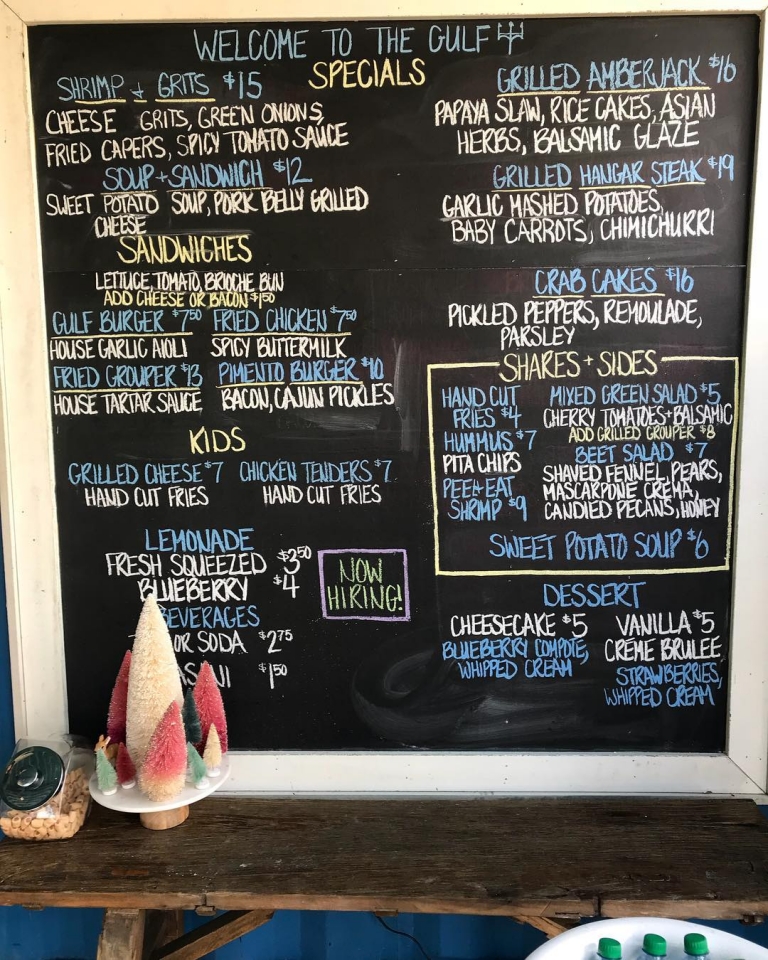 WELCOME TO THE GULF
SPECIALS
SHRIMP & GRITS $15
CHEESE GRITS, GREEN ONIONS,
FRIED CAPERS, SPICY TOMATO SAUCE
SOUP + SANDWICH $12
SWEET POTATO SOUP, PORK BELLY GRILLED
CHEESE
GRILLED AMBERJACK $16
PAPAYA SLAW, RICE CAKES, ASIAN
HERBS, BALSAMIC GLAZE
GRILLED HANGAR STEAK $19
GARLIC MASHED POTATOES,
BABY CARROTS, CHIMICHURRI
CRAB CAKES $16
PICKLED PEPPERS, REMOULADE,
PARSLEY
SANDWICHES
LETTUCE, TOMATO, BRIOCHE BUN
ADD CHEESE OR BACON $1.50
GULF BURGER $7.50
HOUSE GARLIC AIOLI
FRIED CHICKEN $7.50
SPICY BUTTERMILK
FRIED GROUPER $13
HOUSE TARTAR SAUCE
PIMENTO BURGER $10
BACON, CAJUN PICKLES
KIDS
GRILLED CHEESE $7
HAND CUT FRIES
CHICKEN TENDERS $7
HAND CUT FRIES
SHARES + SIDES
HAND CUT
FRIES $4
HUMMUS $7
PITA CHIPS
PEEL + EAT
SHRIMP $9
MIXED GREEN SALAD $5
CHERRY TOMATOES + BALSAMIC
ADD GRILLED GROUPER $8
BEET SALAD $7
SHAVED FENNEL, PEARS,
MASCARPONE CREMA,
CANDIED PECANS, HONEY
SWEET POTATO SOUP $6
LEMONADE
FRESH SQUEEZED $3.50
BLUEBERRY $4
BEVERAGES
OR SODA $2.75
$1.50
NOW
HIRING!
DESSERT
CHEESECAKE $5
BLUEBERRY COMPOTE,
WHIPPED CREAM
VANILLA $5
CRÈME BRULEE
STRAWBERRIES,
WHIPPED CREAM